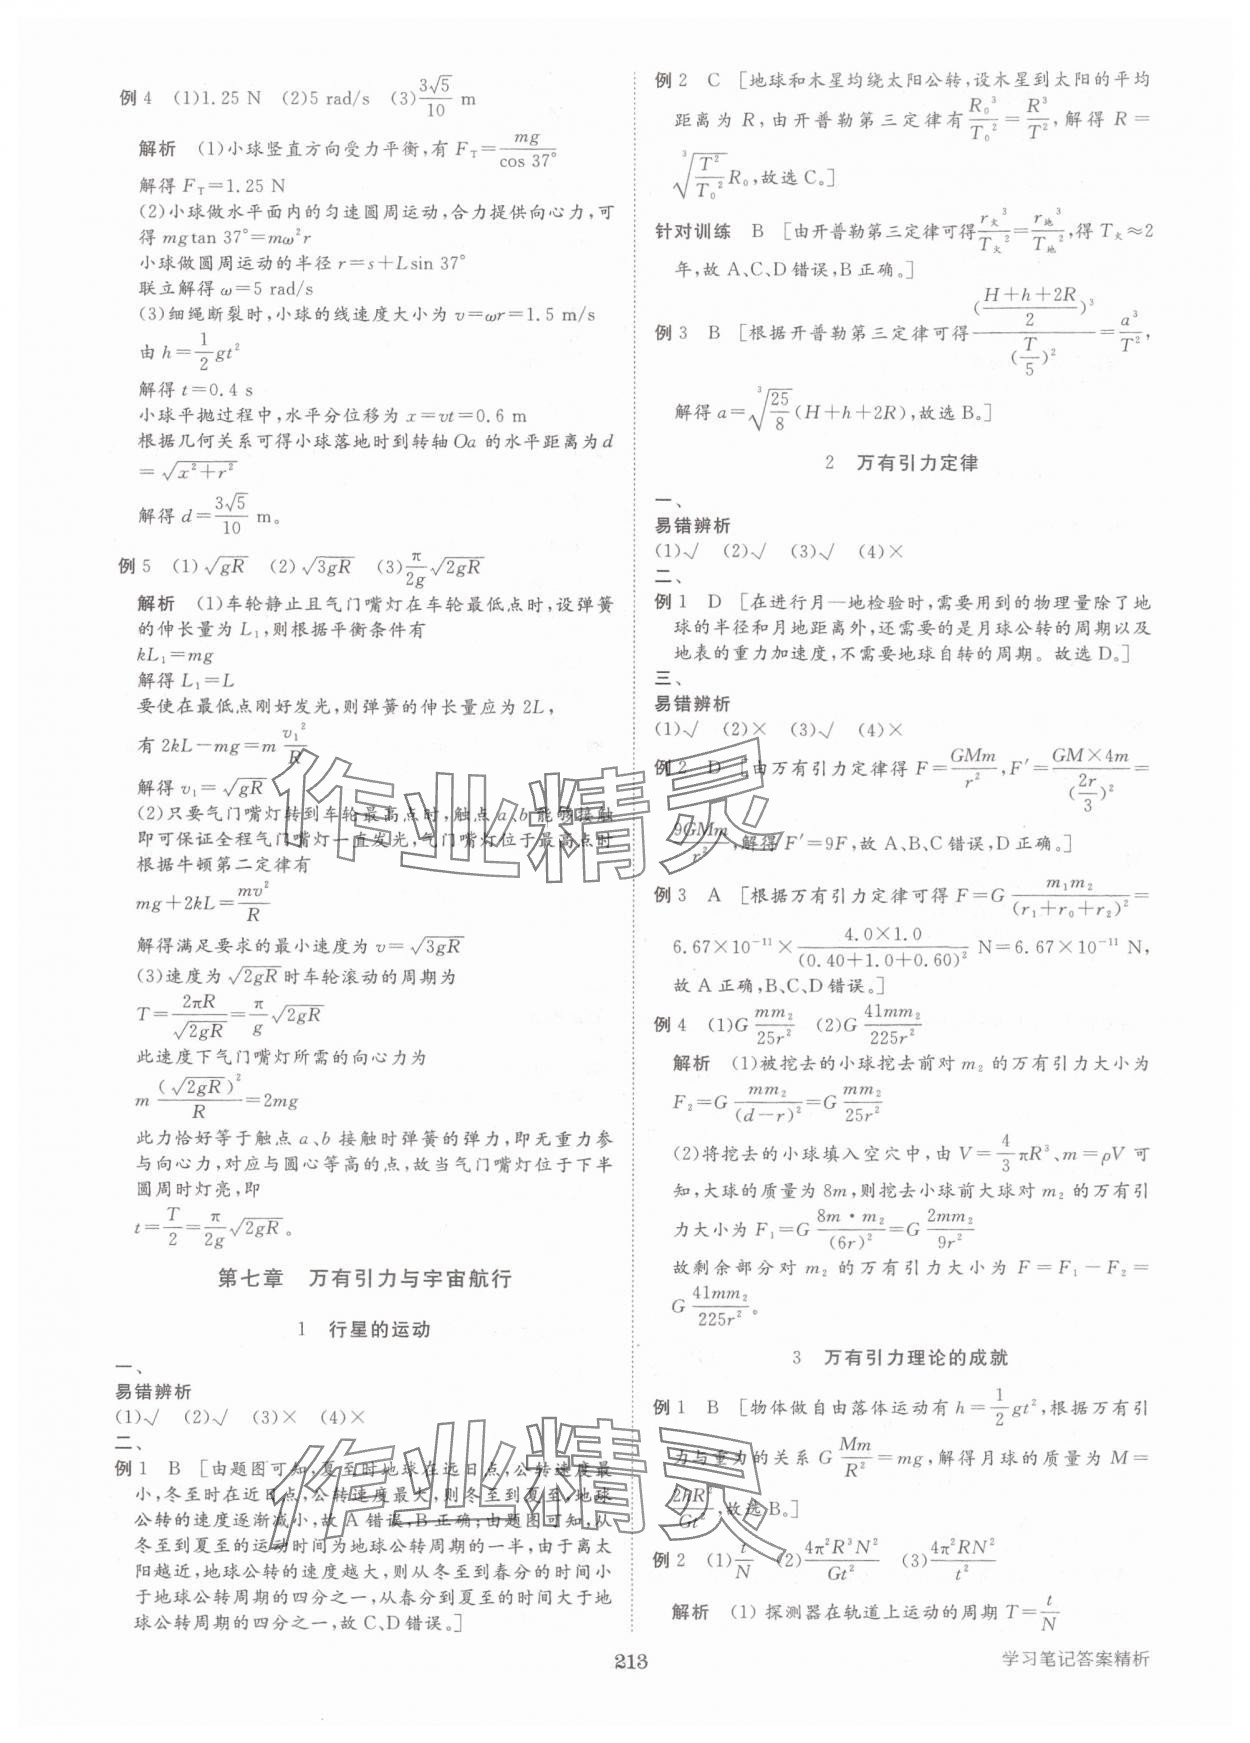 例4　(1)1.25 N　(2)5 rad/s　(3)3√5/10 m
解析　(1)小球竖直方向受力平衡,有 F_T=mg/cos 37°
解得 F_T=1.25 N
(2)小球做水平面内的匀速圆周运动,合力提供向心力,可
得 mgtan 37°=mω²r
小球做圆周运动的半径 r=s+Lsin 37°
联立解得 ω=5 rad/s
(3)细绳断裂时,小球的线速度大小为 v=ωr=1.5 m/s
由 h=1/2 gt²
解得 t=0.4 s
小球平抛过程中,水平分位移为 x=vt=0.6 m
根据几何关系可得小球落地时到转轴 Oa 的水平距离为 d
=√(x²+r²)
解得 d=3√5/10 m。
例5　(1)√(gR)　(2)√(3gR)　(3)π/2g √(2gR)
解析　(1)车轮静止且气门嘴灯在车轮最低点时,设弹簧
的伸长量为 L₁,则根据平衡条件有
kL₁=mg
解得 L₁=L
要使在最低点刚好发光,则弹簧的伸长量应为 2L,
有 2kL-mg=m v₁²/R
解得 v₁=√(gR)
(2)只要气门嘴灯转到车轮最高点时,触点 a、b 能够接触
即可保证全程气门嘴灯一直发光,气门嘴灯位于最高点时
根据牛顿第二定律有
mg+2kL=mv²/R
解得满足要求的最小速度为 v=√(3gR)
(3)速度为 √(2gR) 时车轮滚动的周期为
T=2πR/√(2gR)=π/g √(2gR)
此速度下气门嘴灯所需的向心力为
m (√(2gR))²/R=2mg
此力恰好等于触点 a、b 接触时弹簧的弹力,即无重力参
与向心力,对应与圆心等高的点,故当气门嘴灯位于下半
圆周时灯亮,即
t=T/2=π/2g √(2gR)。
第七章　万有引力与宇宙航行
1　行星的运动
一、
易错辨析
(1)√　(2)√　(3)×　(4)×
二、
例1　B　[由题图可知,夏至时地球在远日点,公转速度最
小,冬至时在近日点,公转速度最大,则冬至到夏至,地球
公转的速度逐渐减小,故A错误,B正确;由题图可知,从
冬至到夏至的运动时间为地球公转周期的一半,由于离太
阳越近,地球公转的速度越大,则从冬至到春分的时间小
于地球公转周期的四分之一,从春分到夏至的时间大于地
球公转周期的四分之一,故C、D错误。]
例2　C　[地球和木星均绕太阳公转,设木星到太阳的平均
距离为 R,由开普勒第三定律有 R₀³/T₀²=R³/T²,解得 R=
³√(T²/T₀²) R₀,故选C。]
针对训练　B　[由开普勒第三定律可得 r火³/T火²=r地³/T地²,得 T火≈2
年,故A、C、D错误,B正确。]
例3　B　[根据开普勒第三定律可得 ((H+h+2R)/2)³/(T/5)²=a³/T²,
解得 a=³√(25/8)(H+h+2R),故选B。]
2　万有引力定律
一、
易错辨析
(1)√　(2)√　(3)√　(4)×
二、
例1　D　[在进行月—地检验时,需要用到的物理量除了地
球的半径和月地距离外,还需要的是月球公转的周期以及
地表的重力加速度,不需要地球自转的周期。故选D。]
三、
易错辨析
(1)√　(2)×　(3)√　(4)×
例2　D　[由万有引力定律得 F=GMm/r²,F′=GM×4m/(2r/3)²=
9GMm/r²,解得 F′=9F,故A、B、C错误,D正确。]
例3　A　[根据万有引力定律可得 F=G m₁m₂/(r₁+r₀+r₂)²=
6.67×10⁻¹¹×4.0×1.0/(0.40+1.0+0.60)² N=6.67×10⁻¹¹ N,
故A正确,B、C、D错误。]
例4　(1)G mm₂/25r²　(2)G 41mm₂/225r²
解析　(1)被挖去的小球挖去前对 m₂ 的万有引力大小为
F₂=G mm₂/(d-r)²=G mm₂/25r²
(2)将挖去的小球填入空穴中,由 V=4/3 πR³、m=ρV 可
知,大球的质量为 8m,则挖去小球前大球对 m₂ 的万有引
力大小为 F₁=G 8m·m₂/(6r)²=G 2mm₂/9r²
故剩余部分对 m₂ 的万有引力大小为 F=F₁-F₂=
G 41mm₂/225r²。
3　万有引力理论的成就
例1　B　[物体做自由落体运动有 h=1/2 gt²,根据万有引
力与重力的关系 G Mm/R²=mg,解得月球的质量为 M=
2hR²/Gt²,故选B。]
例2　(1)t/N　(2)4π²R³N²/Gt²　(3)4π²RN²/t²
解析　(1) 探测器在轨道上运动的周期 T=t/N
213
学习笔记答案精析
作业精灵
作业精灵